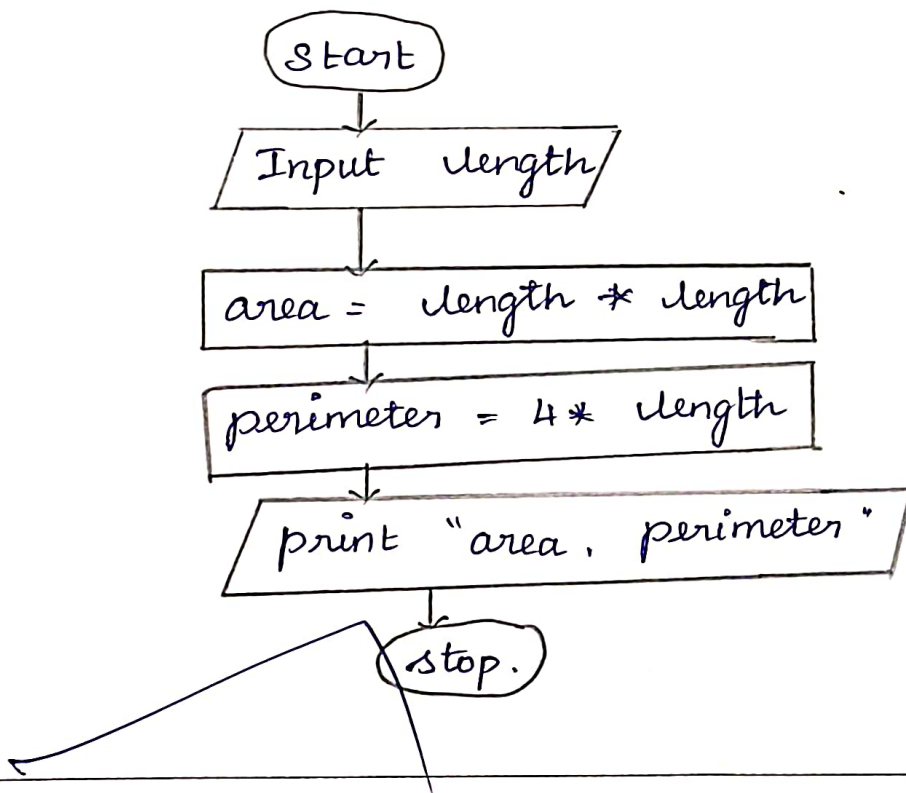 start
Input length
area = length * length
perimeter = 4* length
print "area, perimeter"
stop.